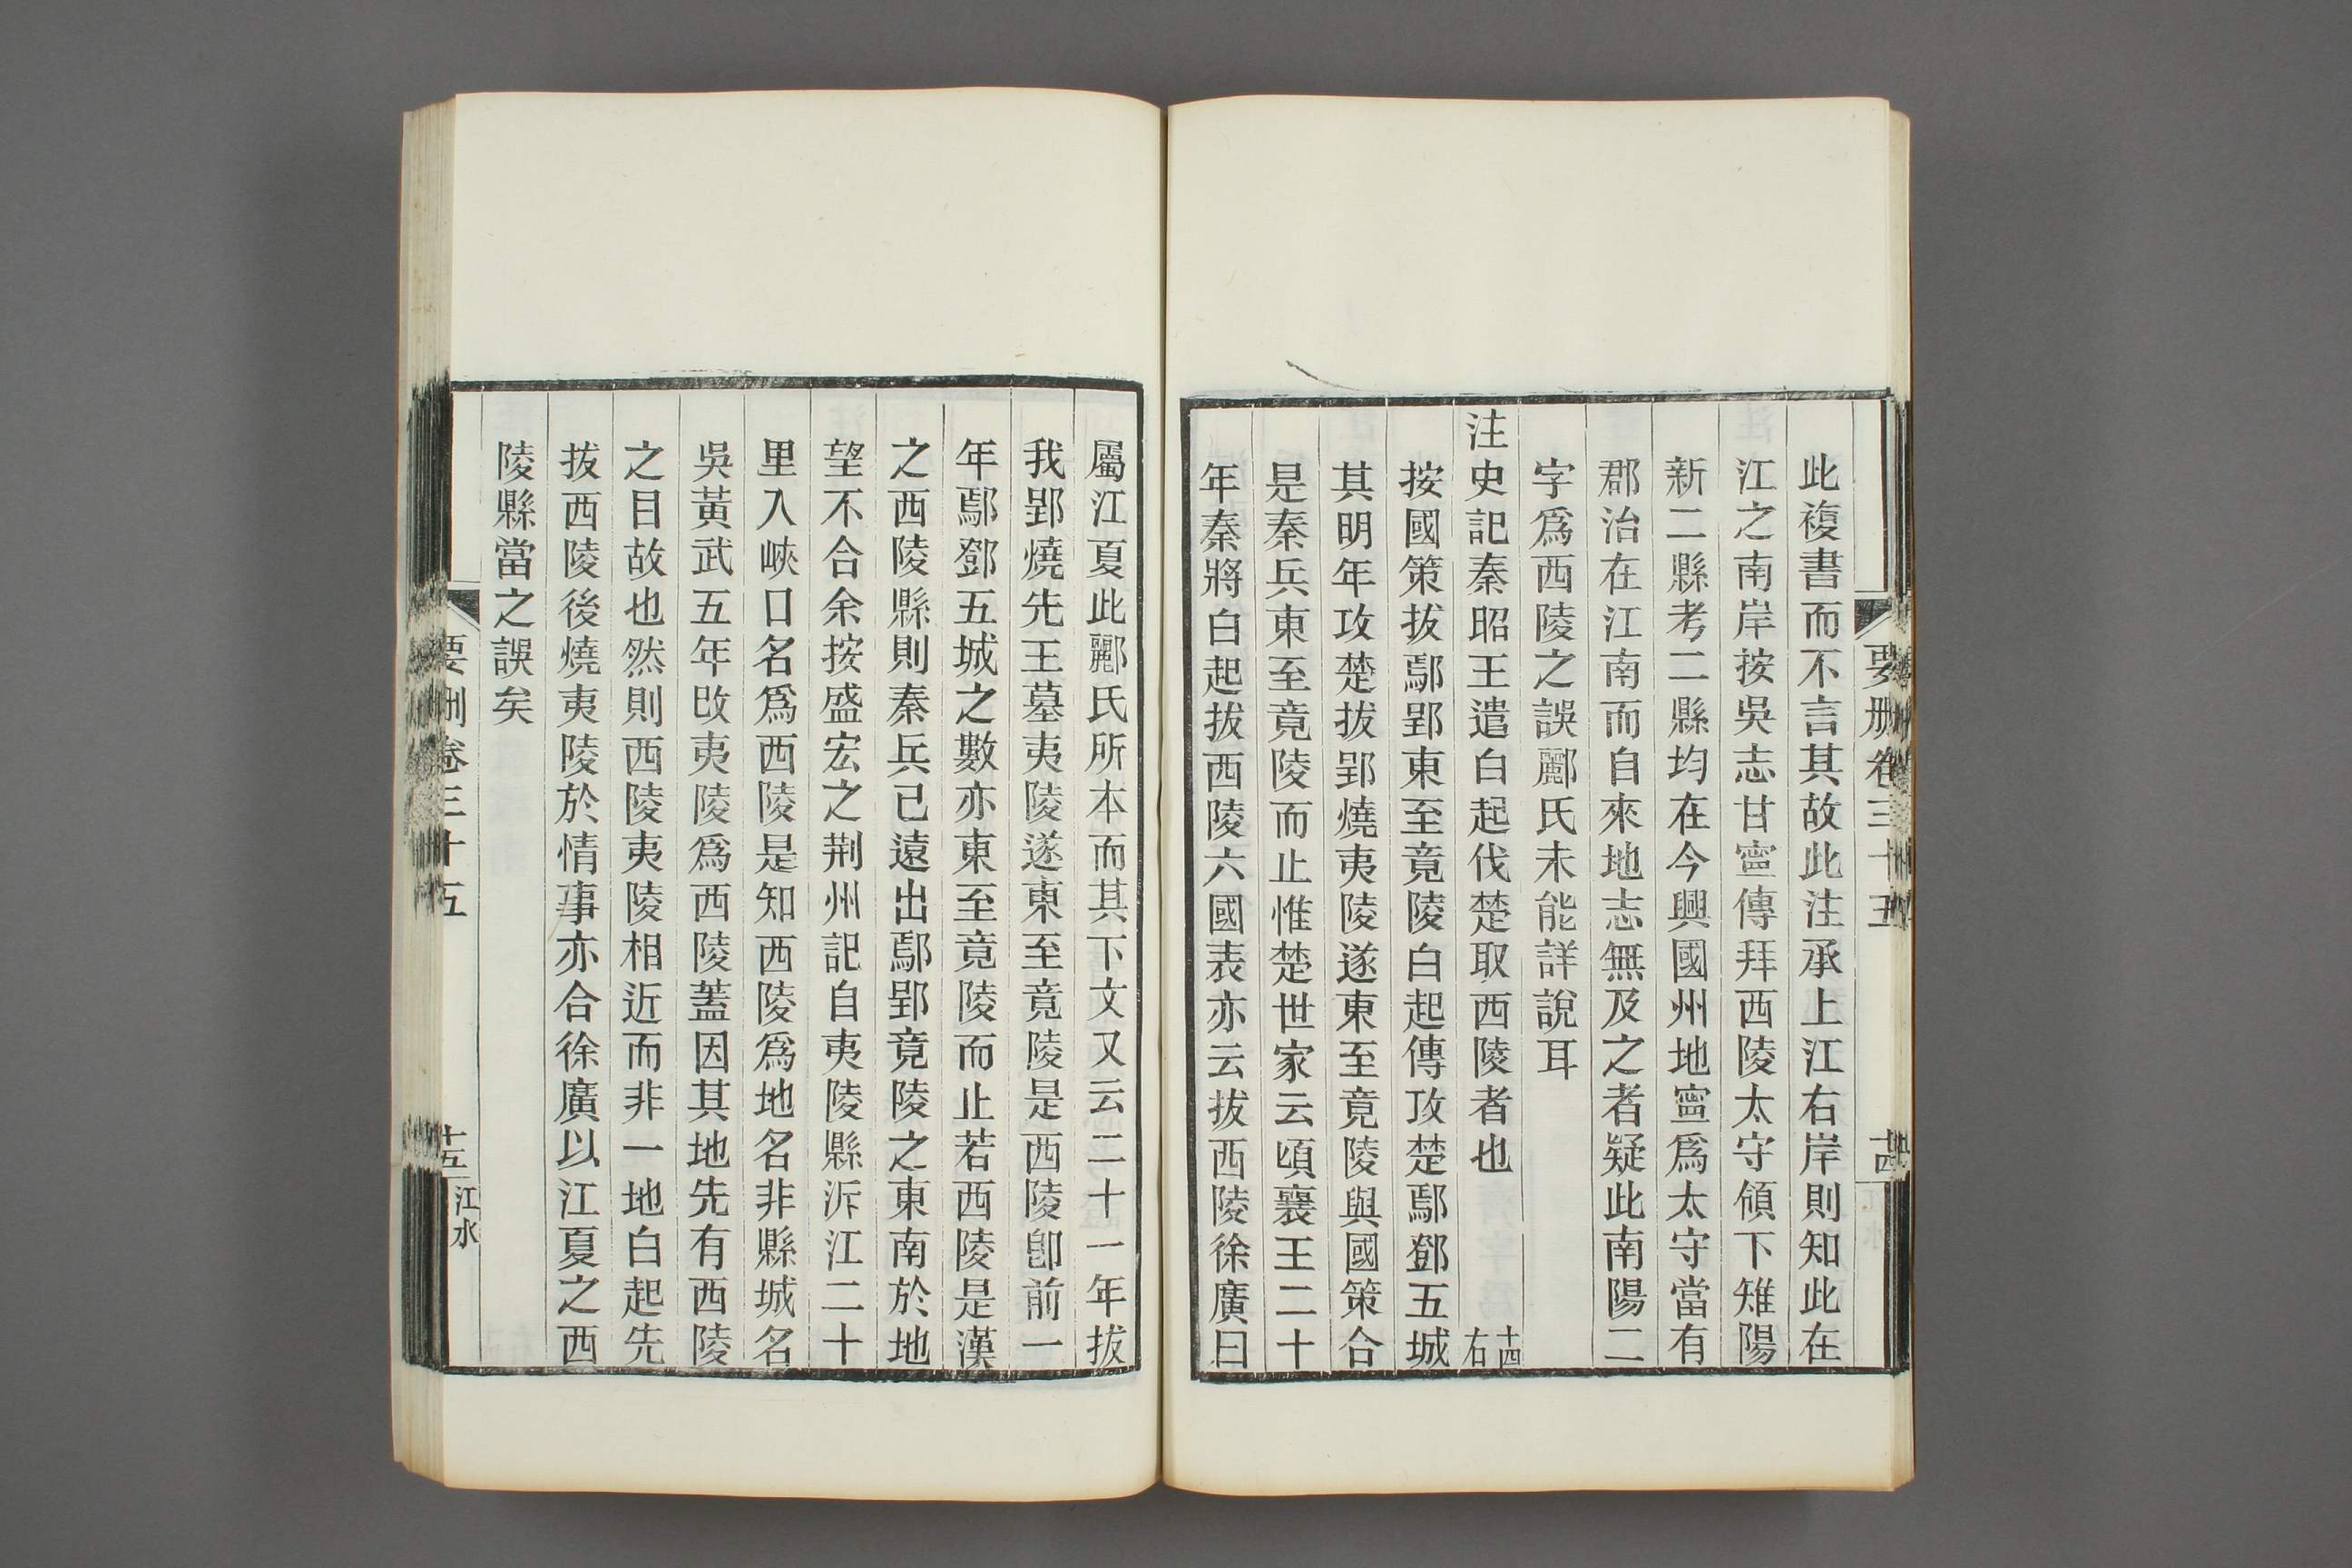 要刪卷三十五
十四
此複書而不言其故此注承上江右岸則知此在
江之南岸按吳志甘寧傳拜西陵太守領下雉陽
新二縣考二縣均在今興國州地寧爲太守當有
郡治在江南而自來地志無及之者疑此南陽二
字爲西陵之誤酈氏未能詳說耳
注史記秦昭王遣白起伐楚取西陵者也 十四右
按國策拔鄢郢東至竟陵白起傳攻楚鄢鄧五城
其明年攻楚拔郢燒夷陵遂東至竟陵與國策合
是秦兵東至竟陵而止惟楚世家云頃襄王二十
年秦將白起拔西陵六國表亦云拔西陵徐廣曰
屬江夏此酈氏所本而其下文又云二十一年拔
我郢燒先王墓夷陵遂東至竟陵是西陵卽前一
年鄢鄧五城之數亦東至竟陵而止若西陵是漢
之西陵縣則秦兵已遠出鄢郢竟陵之東南於地
望不合余按盛宏之荆州記自夷陵縣泝江二十
里入峽口名爲西陵是知西陵爲地名非縣城名
吳黃武五年改夷陵爲西陵蓋因其地先有西陵
之目故也然則西陵夷陵相近而非一地白起先
拔西陵後燒夷陵於情事亦合徐廣以江夏之西
陵縣當之誤矣
要刪卷三十五
十五
江水